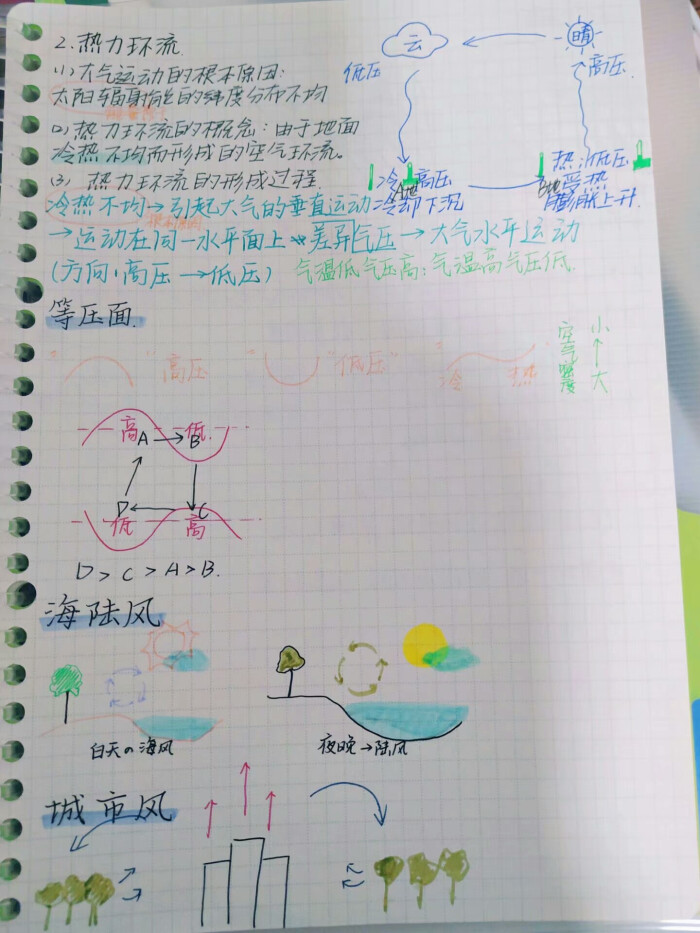 2.热力环流
(1)大气运动的根本原因:
太阳辐射能的纬度分布不均
(2)热力环流的概念:由于地面
冷热不均而形成的空气环流。
(3) 热力环流的形成过程
云
晴
低压
高压
冷
A地
高压
冷却下沉
热:低压
B地
受热
膨胀上升
冷热不均→引起大气的垂直运动
根本原因
→运动在同一水平面上 差异气压→大气水平运动
(方向:高压→低压) 气温低气压高;气温高气压低.
等压面.
"高压
"低压"
冷 热
空气密度
小
↑
大
高 A → B 低
D C
低 高
D>C>A>B.
海陆风
白天の海风
夜晚→陆风
城市风